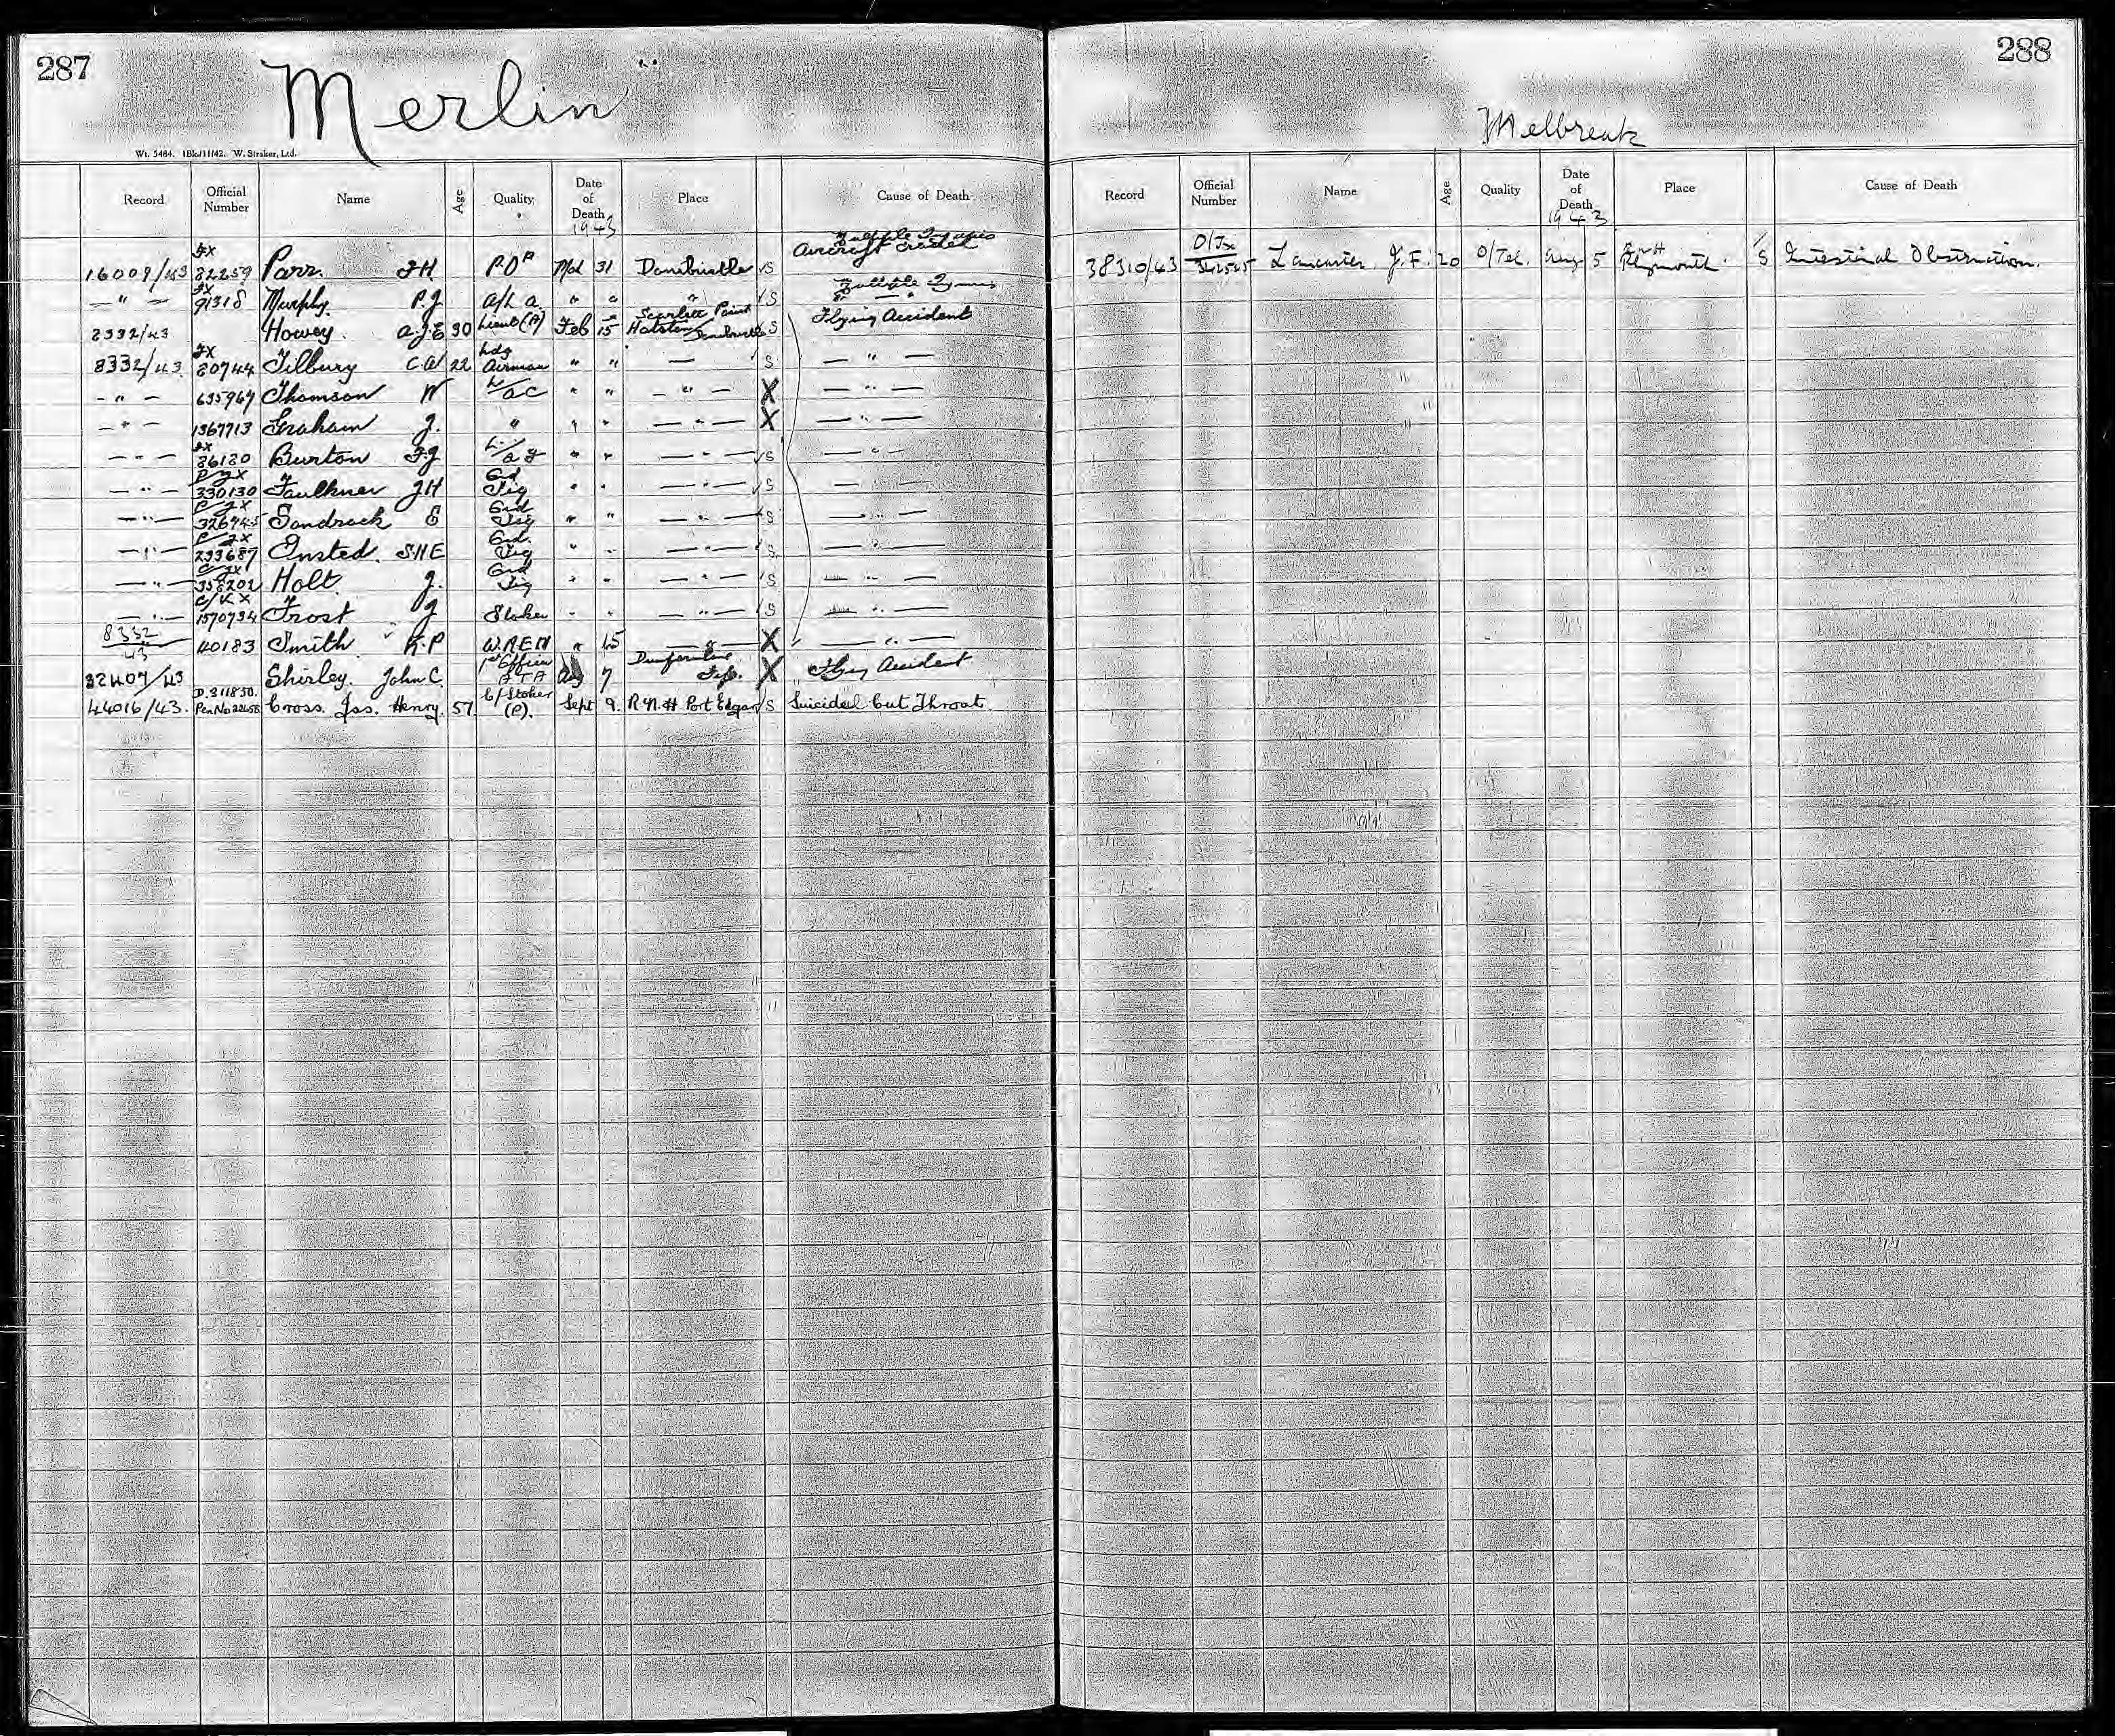 287
Merlin
Wt. 5464. 1Bk/11/42. W. Straker, Ltd.
Record Official Number Name Age Quality Date of Death 1943 Place Cause of Death
16009/43 FX 82259 Parr. FH P.O. Mch 31 Donibristle S Multiple Injuries Aircraft crashed
— " — FX 91318 Murphy. P.J. A/L.A. " " " S Multiple Injuries
8332/43 Howey. A.J.E 30 Lieut (A) Feb 15 Scarlett Point Hatston Donibristle S Flying Accident
8332/43 FX 80744 Tilbury C.W 22 Ldg Airman " " — S — " —
— " — 635969 Thomson W L/AC " " — " — X — " —
— " — 1367713 Graham J. " " " — " — X — " —
— " — FX 86180 Burton F.J L/A.F " " — " — S — " —
— " — P/JX 330130 Faulkner J.H Ord Sig " " — " — S — " —
— " — P/JX 326745 Sandrock E Ord Sig " " — " — S — " —
— " — P/JX 233687 Onsted. S.H.E Ord. Sig " " — " — S — " —
— " — C/JX 358202 Holt. J. Ord Sig " " — " — S — " —
— " — C/KX 1570734 Frost J Stoker " " — " — S — " —
8332/43 40183 Smith K.P W.REN " 15 — " — X — " —
32407/43 Shirley. John C. 1st Officer A T A Aug 7 Dunfermline Fife. X Flying Accident
44016/43. D.311850. Pen No 22658 Cross. Jas. Henry. 57 L/Stoker (P). Sept 9. R.N.H Port Edgar S Suicidal Cut Throat
288
Melbreak
Record Official Number Name Age Quality Date of Death 1943 Place Cause of Death
38310/43 D/Jx Lancaster J.F. 20 O/Tel. Aug 5 RNH Plymouth. S Intestinal Obstruction.